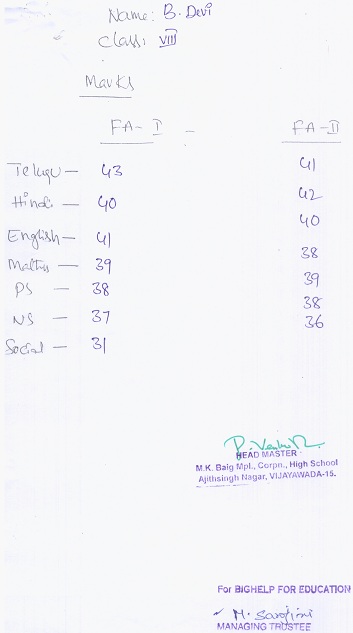 Name: B. Devi
Class: VIII
Marks
FA-I - FA-II
Telugu - 43 41
Hindi - 40 42
English - 41 40
Maths - 39 38
PS - 38 39
NS - 37 38
Social - 31 36
HEAD MASTER
M.K. Baig Mpl., Corpn., High School
Ajithsingh Nagar, VIJAYAWADA-15.
For BIGHELP FOR EDUCATION
M. Sarojini
MANAGING TRUSTEE